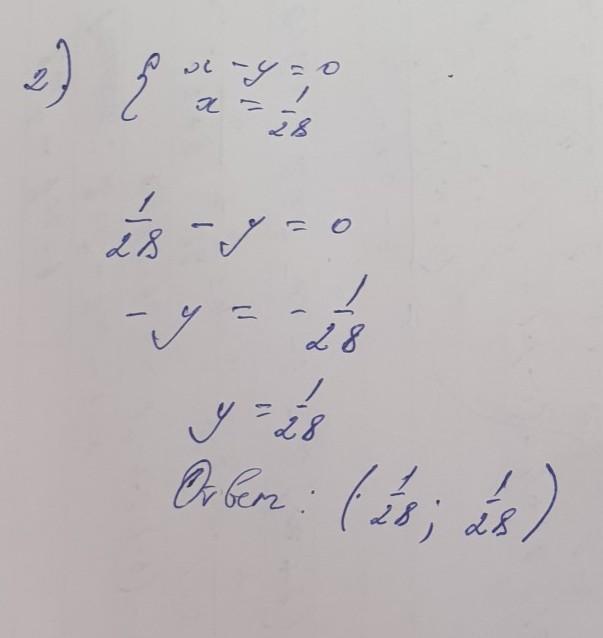 2) { x - y = 0
x = 1/28
1/28 - y = 0
- y = - 1/28
y = 1/28
Ответ: (1/28; 1/28)